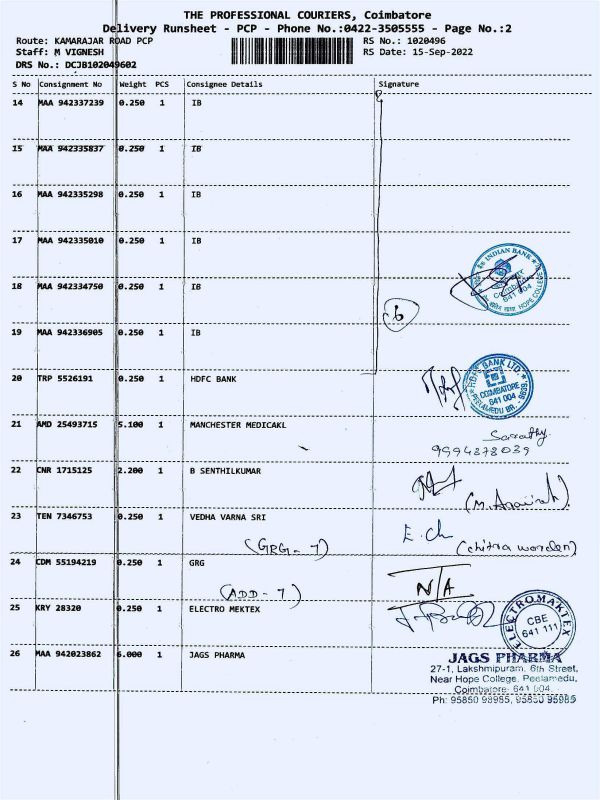 THE PROFESSIONAL COURIERS, Coimbatore
Delivery Runsheet - PCP - Phone No.:0422-3505555 - Page No.:2
Route: KAMARAJAR ROAD PCP RS No.: 1020496
Staff: M VIGNESH RS Date: 15-Sep-2022
DRS No.: DCJB102049602
S No Consignment No Weight PCS Consignee Details Signature
14 MAA 942337239 0.250 1 IB
15 MAA 942335837 0.250 1 IB
16 MAA 942335298 0.250 1 IB
17 MAA 942335010 0.250 1 IB
INDIAN BANK
Coimbatore
641 004
HOPE COLLEGE
18 MAA 942334750 0.250 1 IB
6
19 MAA 942336905 0.250 1 IB
20 TRP 5526191 0.250 1 HDFC BANK
BANK LTD.
COIMBATORE
641 004
PEELAMEDU BR.
21 AMD 25493715 5.100 1 MANCHESTER MEDICAKL
9994378039
22 CNR 1715125 2.200 1 B SENTHILKUMAR
23 TEN 7346753 0.250 1 VEDHA VARNA SRI
(GRG - 7)
E. Ch
(chitra worden)
24 CDM 55194219 0.250 1 GRG
(ADD - 7)
N/A
25 KRY 28320 0.250 1 ELECTRO MEKTEX
ELECTROMAKTEX
CBE
641 111
26 MAA 942023862 6.000 1 JAGS PHARMA
JAGS PHARMA
27-1, Lakshmipuram, 6th Street,
Near Hope College, Peelamedu,
Coimbatore- 641 004
Ph: 95850 98985, 95850 95985